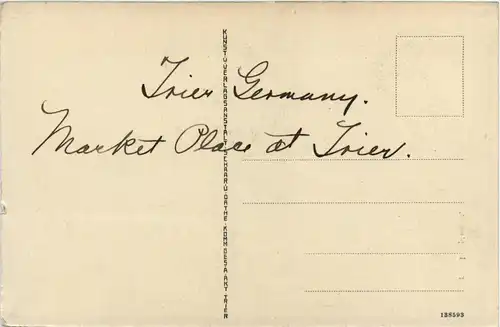 Trier Germany.
Market Place at Trier.
KUNST-U.VERLAGSANSTALT SCHAAR U.DATHE·KOMM.GES.A.AKT.TRIER
138593